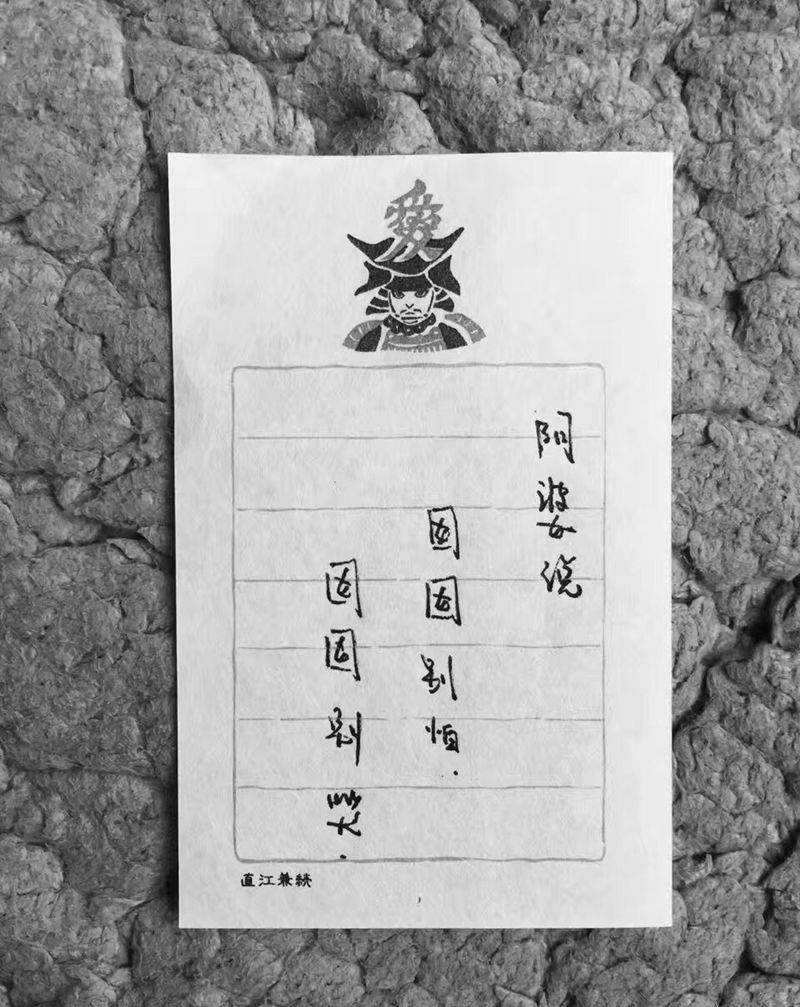 愛
阿婆说
囡囡别怕.
囡囡别哭.
直江兼続